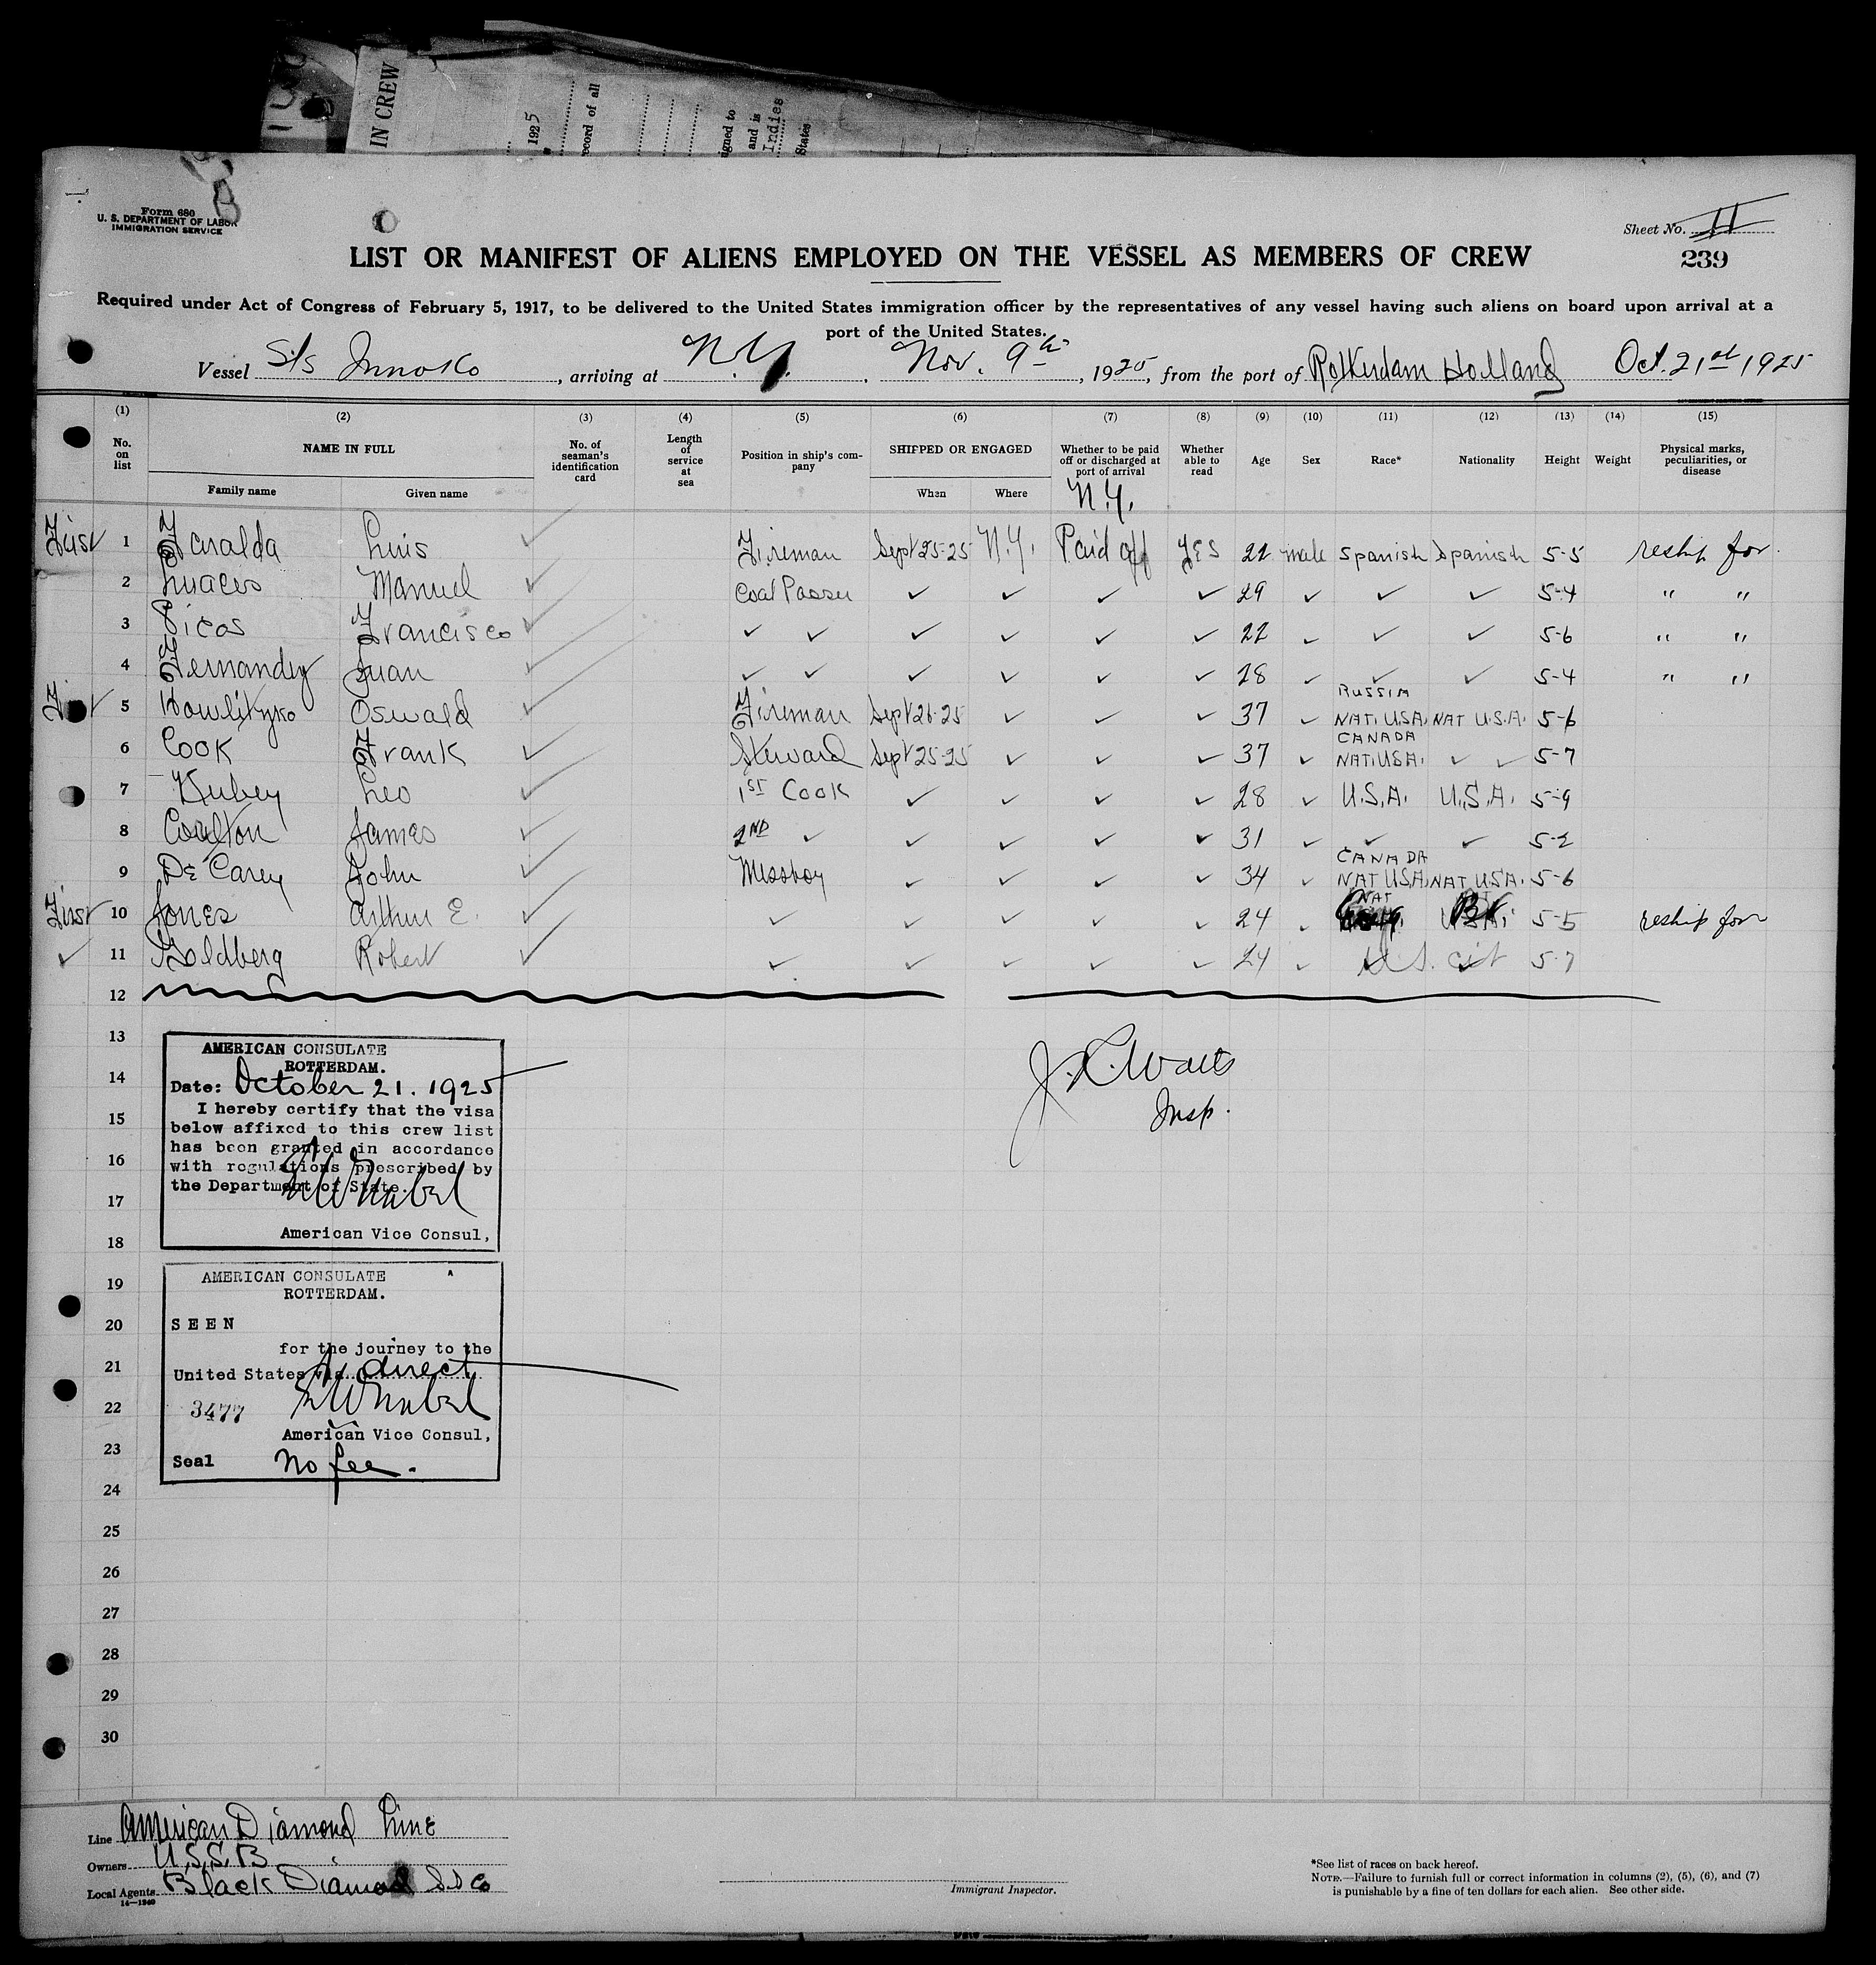 IN CREW
1925
ecord of all
igned to
and is
Indies
States
Form 680
U. S. DEPARTMENT OF LABOR
IMMIGRATION SERVICE
Sheet No. 11
239
LIST OR MANIFEST OF ALIENS EMPLOYED ON THE VESSEL AS MEMBERS OF CREW
Required under Act of Congress of February 5, 1917, to be delivered to the United States immigration officer by the representatives of any vessel having such aliens on board upon arrival at a
port of the United States.
Vessel S/S Innoko, arriving at N.Y., Nov. 9th, 1925, from the port of Rotterdam Holland Oct. 21st 1925
(1) (2) (3) (4) (5) (6) (7) (8) (9) (10) (11) (12) (13) (14) (15)
No. on list NAME IN FULL Family name Given name No. of seaman's identification card Length of service at sea Position in ship's company SHIPPED OR ENGAGED When Where Whether to be paid off or discharged at port of arrival Whether able to read Age Sex Race* Nationality Height Weight Physical marks, peculiarities, or disease
N.Y.
First 1 Faralda Luis ✓ Fireman Sept 25-25 N.Y. Paid off YES 22 male Spanish Spanish 5-5 reship for.
2 Luaces Manuel ✓ Coal Passer ✓ ✓ ✓ ✓ 29 ✓ ✓ ✓ 5-4 " "
3 Picos Francisco ✓ ✓ ✓ ✓ ✓ ✓ ✓ 22 ✓ ✓ ✓ 5-6 " "
4 Fernandez Juan ✓ ✓ ✓ ✓ ✓ ✓ ✓ 28 ✓ ✓ ✓ 5-4 " "
RUSSIA
First 5 Oswald Fireman Sept 26-25 ✓ ✓ ✓ 37 ✓ NAT. U.S.A. NAT U.S.A. 5-6
CANADA
6 Cook Frank ✓ Steward Sept 25-25 ✓ ✓ ✓ 37 ✓ NAT. USA. ✓ ✓ 5-7
7 Kubey Leo ✓ 1ST Cook ✓ ✓ ✓ ✓ 28 ✓ U.S.A. U.S.A. 5-9
8 Coulton James ✓ 2ND ✓ ✓ ✓ ✓ ✓ 31 ✓ ✓ ✓ 5-2
CANADA
9 De Carey John ✓ Messboy ✓ ✓ ✓ ✓ 34 ✓ NAT USA. NAT U.S.A. 5-6
First 10 Jones Arthur E. ✓ ✓ ✓ ✓ ✓ ✓ 24 ✓ Br 5-5 reship for
✓ 11 Goldberg Robert ✓ ✓ ✓ ✓ ✓ ✓ 24 ✓ U.S. cit 5-7
12
13
14
15
16
17
18
19
20
21
22
23
24
25
26
27
28
29
30
AMERICAN CONSULATE
ROTTERDAM.
Date: October 21. 1925
I hereby certify that the visa
below affixed to this crew list
has been granted in accordance
with regulations prescribed by
the Department of State.
American Vice Consul,
Insp.
AMERICAN CONSULATE
ROTTERDAM.
SEEN
for the journey to the
United States via direct
3477
American Vice Consul,
Seal No fee.
Line American Diamond Line
Owners U.S.S.B
Local Agents Black Diamond S S Co
14—1240
Immigrant Inspector.
*See list of races on back hereof.
NOTE.—Failure to furnish full or correct information in columns (2), (5), (6), and (7)
is punishable by a fine of ten dollars for each alien. See other side.